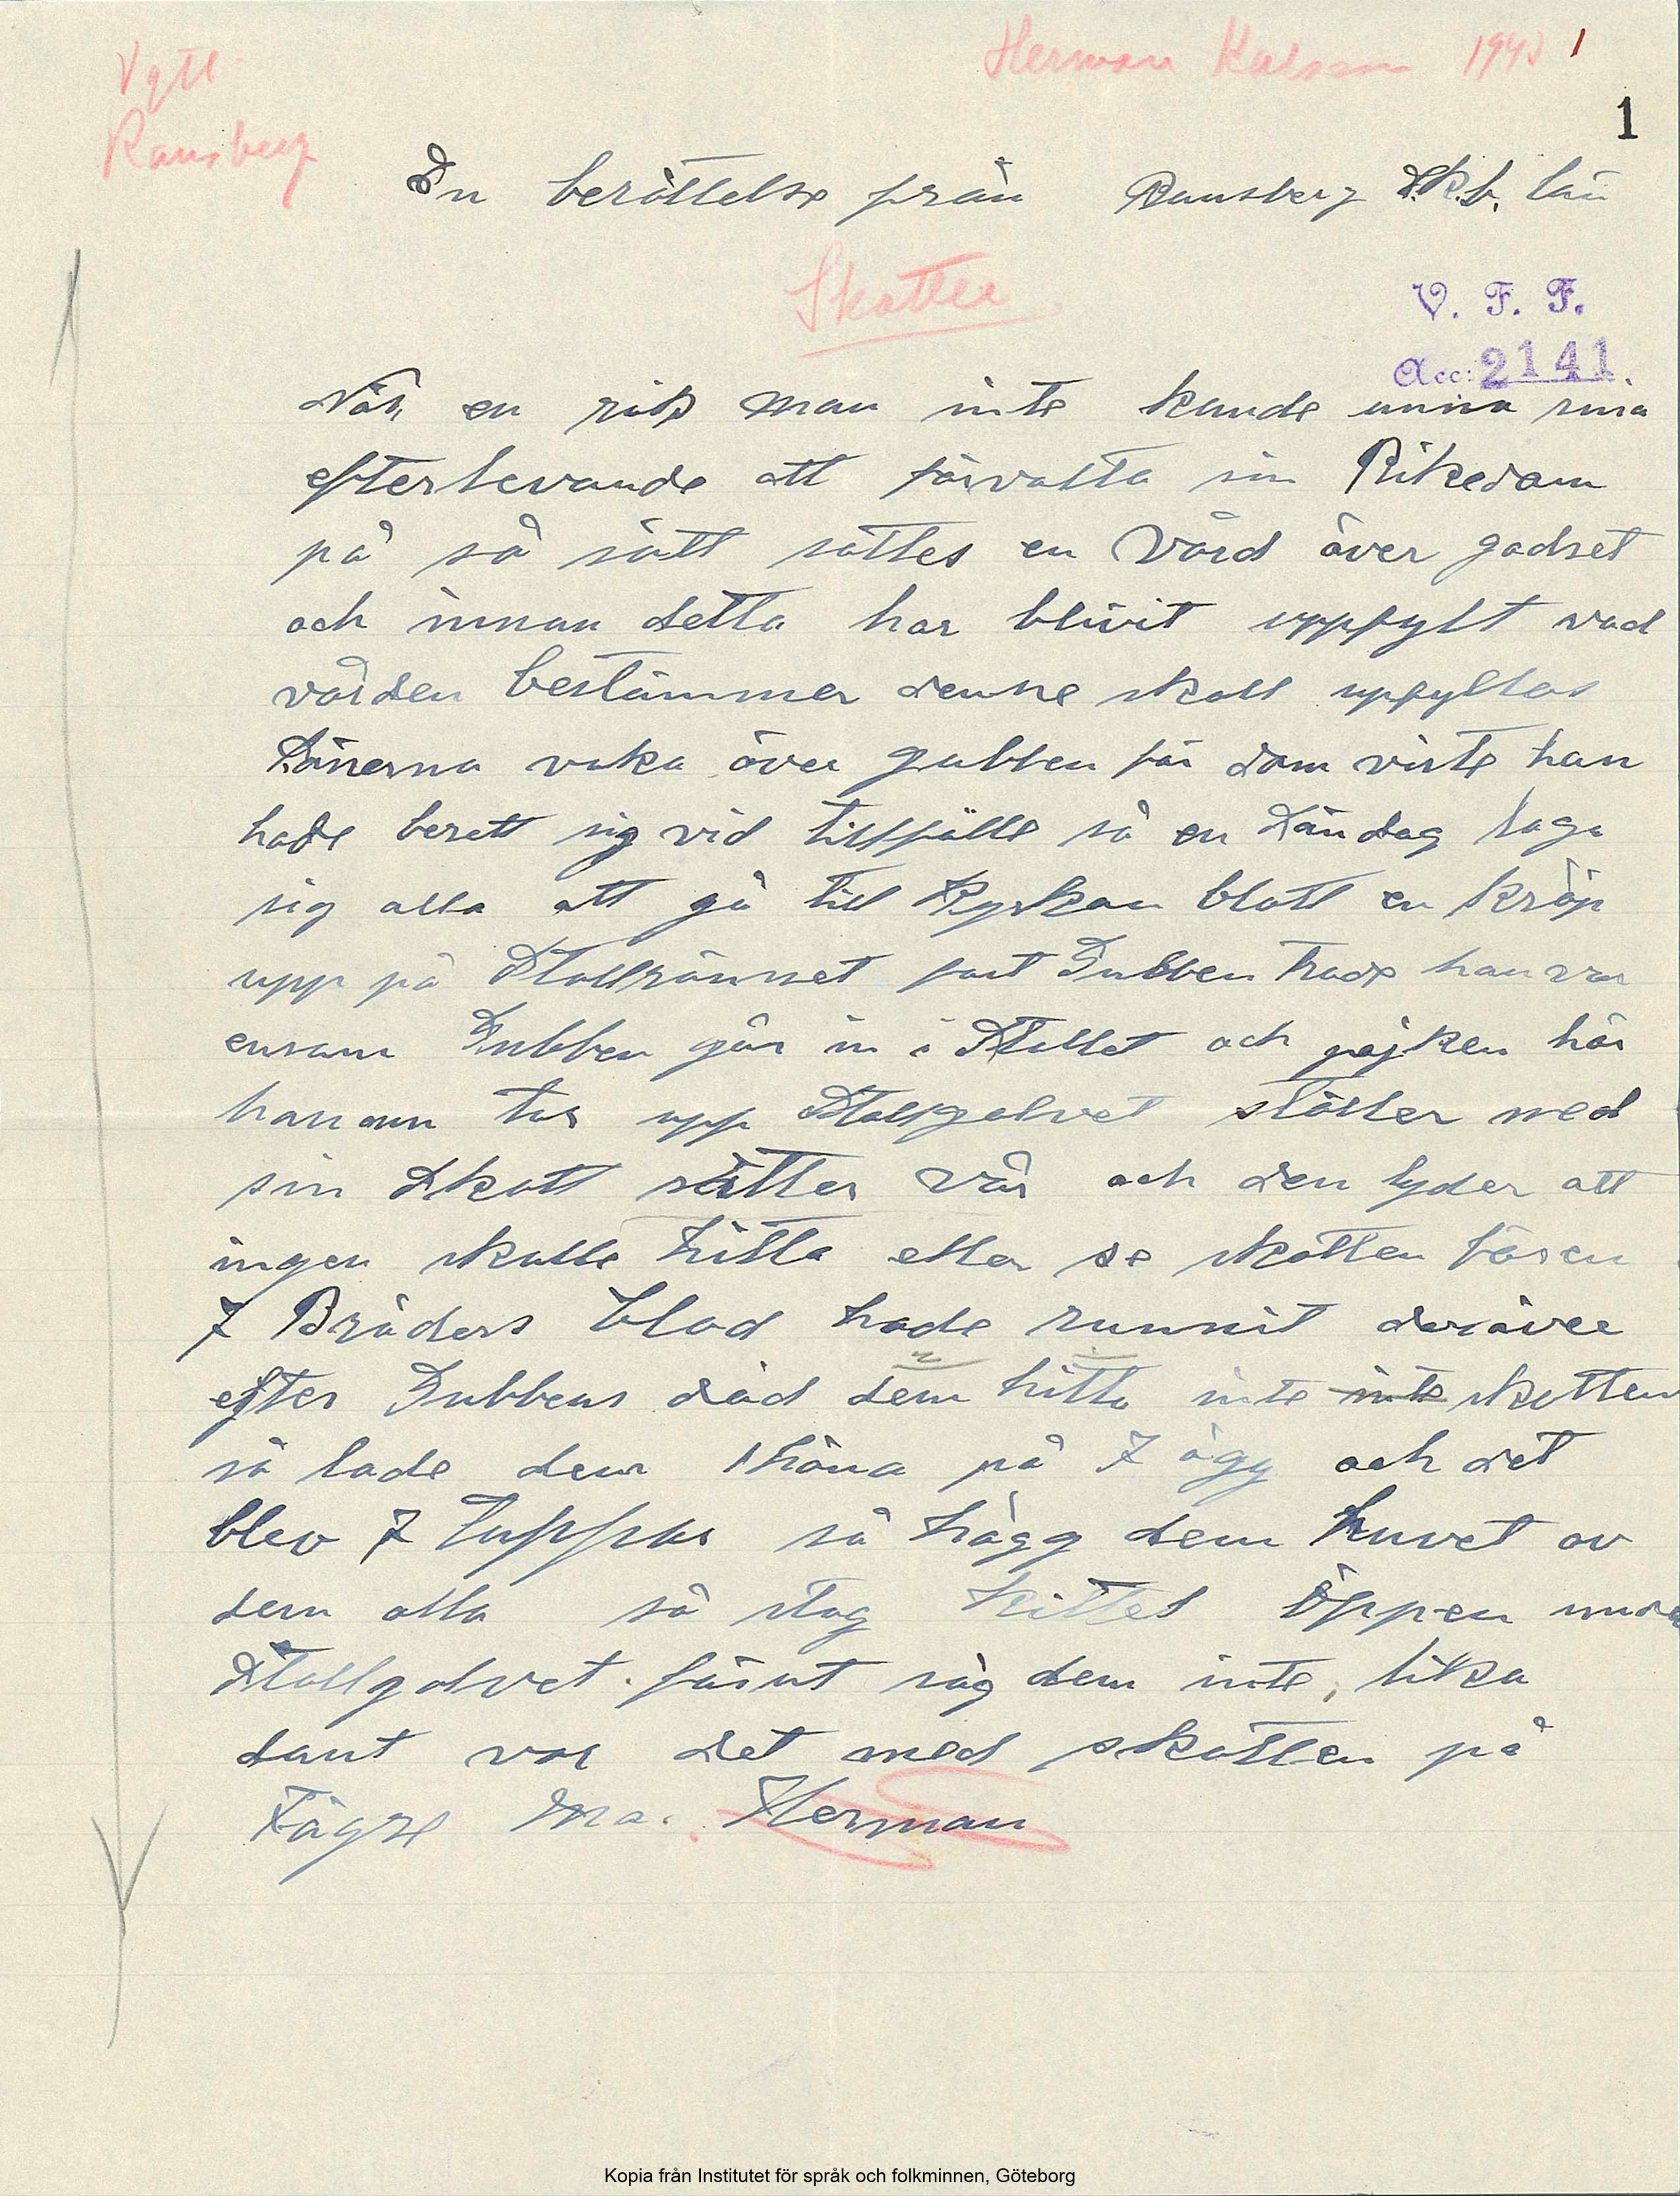 Vgtl
Herman Karlsson 1943 1
Ransberg
1
En berättelse från Ransberg Skb. län
Skatter
V. F. F.
Acc: 2141.
När en rik man inte kunde unna sina
efterlevande att förvalta sin Rikedom
på så sätt sattes en Vård över godset
och innan detta har blivit uppfylt vad
vården bestämmer denne skall uppfyllas
Sönerna vaka över gubben för dom viste han
hade berett sig vid tillfälle så en Söndag laga
sig alla att gå till Kyrkan blott en kröp
upp på Stallrännet fast Gubben trode han var
ensam Gubben går in i Stallet och pojken hör
hanom tar upp Stallgolvet ställer ned
sin Skatt sätter Vår och den lyder att
ingen skulle hitta eller se skatten fören
7 Bröders blod hade runnit deröver
efter Gubbens död dem hitta inte inte skatten
så lade dem 1 höna på 7 ägg och det
blev 7 tuppar så högg dem huvet av
dem alla så stog kittel öppen under
Stallgolvet. förut såg dem inte, lika
dant var det med skatten på
Fägre Herman
Kopia från Institutet för språk och folkminnen, Göteborg